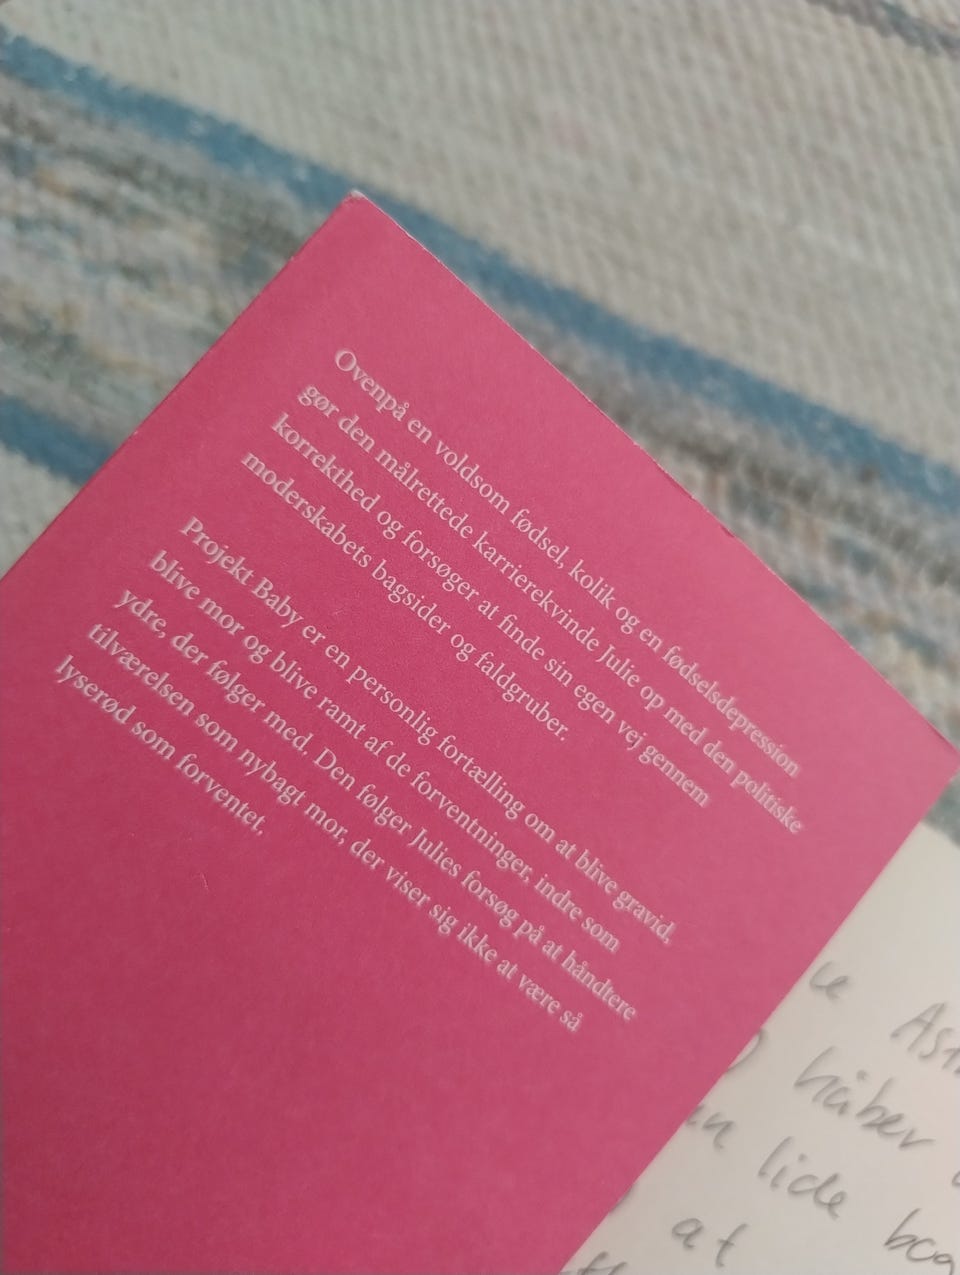 Ovenpå en voldsom fødsel, kolik og en fødselsdepression
gør den målrettede karrierekvinde Julie op med den politiske
korrekthed og forsøger at finde sin egen vej gennem
moderskabets bagsider og faldgruber.
Projekt Baby er en personlig fortælling om at blive gravid,
blive mor og blive ramt af de forventninger, indre som
ydre, der følger med. Den følger Julies forsøg på at håndtere
tilværelsen som nybagt mor, der viser sig ikke at være så
lyserød som forventet.
håber
lide
at